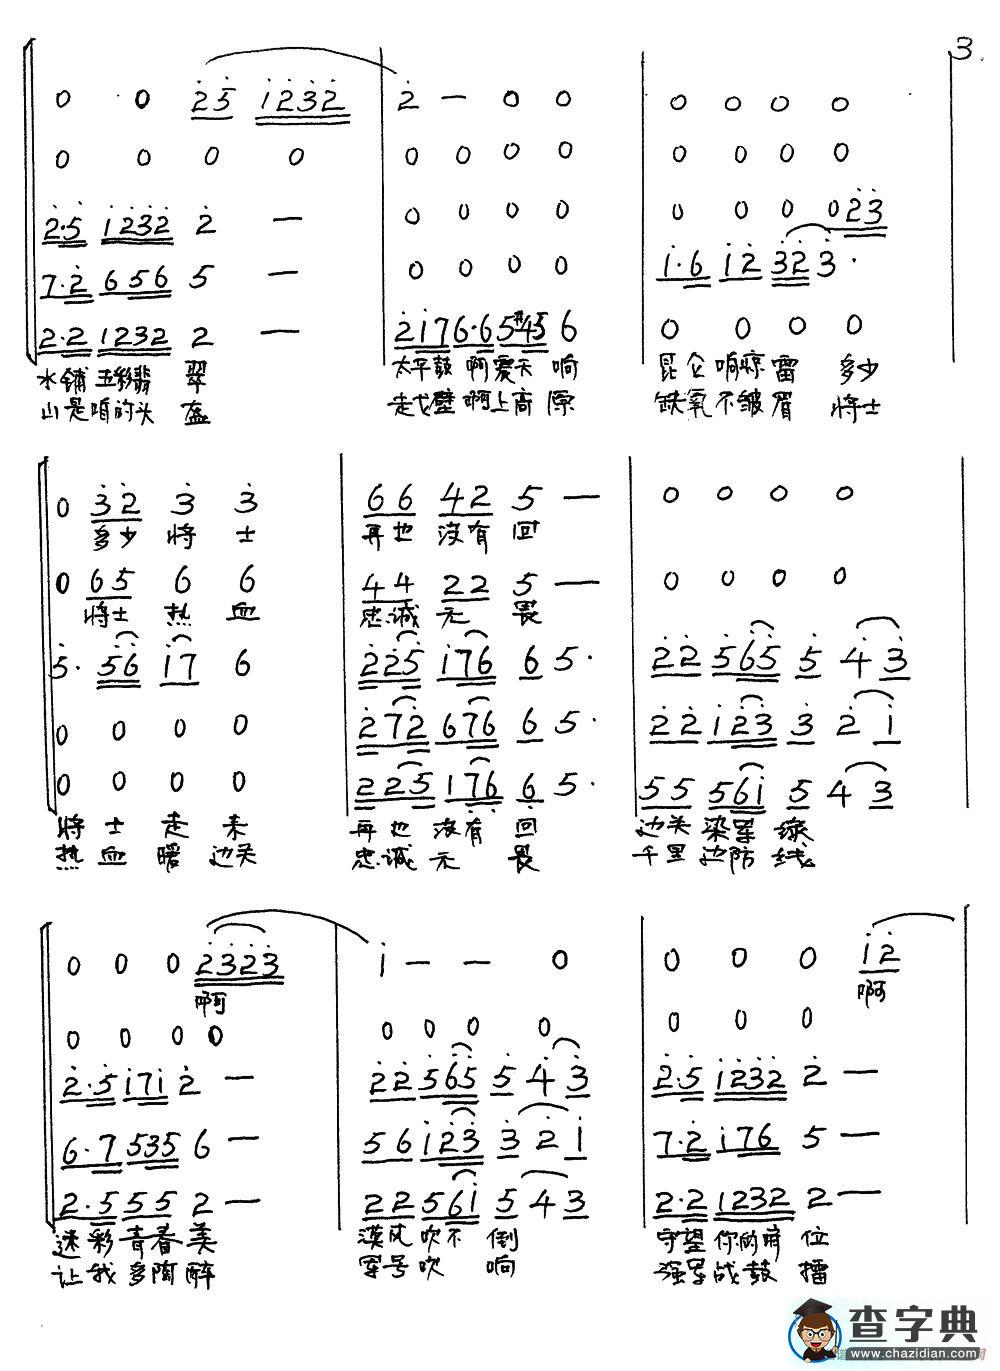 3.
0 0 2̇5̇ 1̇2̇3̇2̇ 2̇ — 0 0 0 0 0 0
0 0 0 0 0 0 0 0 0 0 0 0
2̇·5̇ 1̇2̇3̇2̇ 2̇ — 0 0 0 0 0 0 0 02̇3̇
7·2̇ 656 5 — 0 0 0 0 1̇·6 1̇2̇ 3̇2̇3̇·
2·2 1232 2 — 2̇1̇76·65#456 0 0 0 0
水铺五彩翡 翠 太平鼓 啊爱天 响 昆仑响惊雷 多少
山是咱的头 盔 走戈壁 啊上高 原 缺氧不皱眉 将士
0 3̇2̇ 3̇ 3̇ 66 42 5 — 0 0 0 0
多少 将 士 再也 没有 回
0 65 6 6 44 22 5 — 0 0 0 0
将士 热 血 忠诚 无 畏
5̇· 5̇6̇ 1̇7 6 2̇2̇5̇ 1̇76 6 5· 2̇2̇ 5̇6̇5̇ 5̇ 4̇ 3̇
0 0 0 0 2̇72̇ 676 6 5· 2̇2̇ 1̇2̇3̇ 3̇ 2̇ 1̇
0 0 0 0 225 176 6 5· 55 561̇ 5 4 3
将 士 走 来 再也 没有 回 边关 染军 绿
热 血 暖 边关 忠诚 无 畏 千里 边防 线
0 0 0 2̇3̇2̇3̇ 1̇ — — 0 0 0 0 1̇2̇
啊 啊
0 0 0 0 0 0 0 0 0 0 0
2̇·5̇ 1̇71̇ 2̇ — 2̇2̇ 5̇6̇5̇ 5̇ 4̇ 3̇ 2̇·5̇ 1̇2̇3̇2̇ 2̇ —
6·7 535 6 — 56 1̇2̇3̇ 3̇ 2̇ 1̇ 7·2̇ 1̇76 5 —
2·5 55 2 — 22 561̇ 5 4 3 2·2 1232 2 —
迷彩青春美 漠风 吹不 倒 守望 你的 位
让我多陶醉 军号吹 响 强军战鼓 擂
查字典
www.chazidian.com